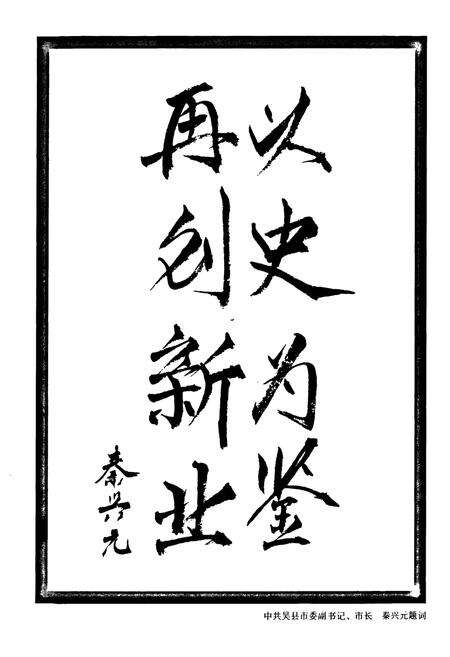 以史为鉴
再创新业
秦兴元
中共吴县市委副书记、市长　秦兴元题词